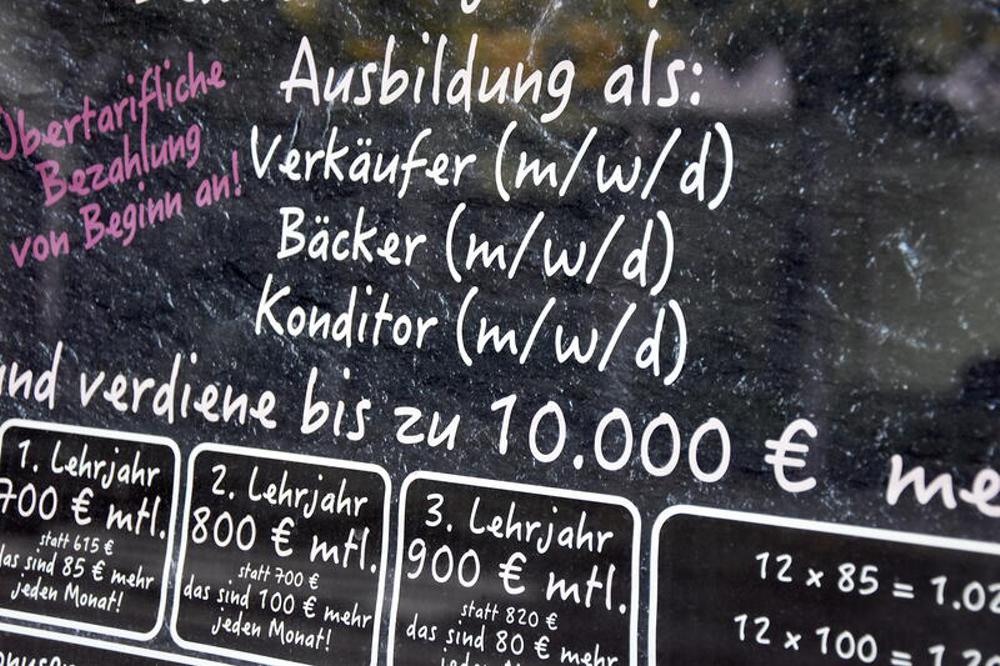 Ausbildung als:
Übertarifliche
Bezahlung
von Beginn an!
Verkäufer (m/w/d)
Bäcker (m/w/d)
Konditor (m/w/d)
und verdiene bis zu 10.000 €
1. Lehrjahr
700 € mtl.
statt 615 €
das sind 85 € mehr
jeden Monat!
2. Lehrjahr
800 € mtl.
statt 700 €
das sind 100 € mehr
jeden Monat!
3. Lehrjahr
900 € mtl.
statt 820 €
das sind 80 € mehr
12 x 85 = 1.02
12 x 100 = 1.20